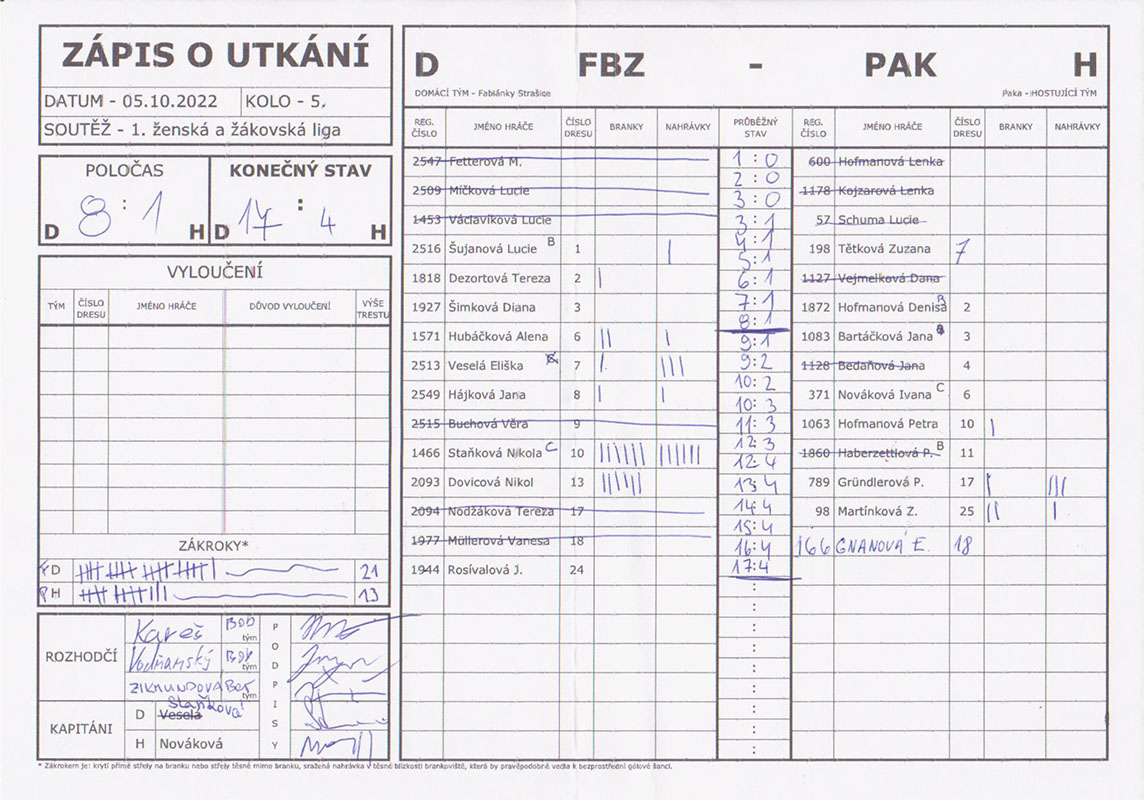 ZÁPIS O UTKÁNÍ
DATUM - 05.10.2022 KOLO - 5.
SOUTĚŽ - 1. ženská a žákovská liga
POLOČAS KONEČNÝ STAV
8 : 1 17 : 4
D H D H
VYLOUČENÍ
TÝM ČÍSLO DRESU JMÉNO HRÁČE DŮVOD VYLOUČENÍ VÝŠE TRESTU
ZÁKROKY*
D 21
H 13
ROZHODČÍ
Kareš BOB tým
Vodňanský tým
ZIKMUNDOVÁ Ber tým
KAPITÁNI
D Veselá Staňková
H Nováková
PODPISY
D FBZ - PAK H
DOMÁCÍ TÝM - Fabiánky Strašice Paka - HOSTUJÍCÍ TÝM
REG. ČÍSLO JMÉNO HRÁČE ČÍSLO DRESU BRANKY NAHRÁVKY PRŮBĚŽNÝ STAV REG. ČÍSLO JMÉNO HRÁČE ČÍSLO DRESU BRANKY NAHRÁVKY
2547 Fetterová M.
2509 Míčková Lucie
1453 Václavíková Lucie
2516 Šujanová Lucie B 1 |
1818 Dezortová Tereza 2 |
1927 Šimková Diana 3
1571 Hubáčková Alena 6 || |
2513 Veselá Eliška 7 | |||
2549 Hájková Jana 8 | |
2515 Buchová Věra 9
1466 Staňková Nikola C 10 |||||| ||||||
2093 Dovicová Nikol 13 ||||||
2094 Nodžáková Tereza 17
1977 Müllerová Vanesa 18
1944 Rosívalová J. 24
1 : 0
2 : 0
3 : 0
3 : 1
4 : 1
5 : 1
6 : 1
7 : 1
8 : 1
9 : 1
9 : 2
10 : 2
10 : 3
11 : 3
12 : 3
12 : 4
13 : 4
14 : 4
15 : 4
16 : 4
17 : 4
600 Hofmanová Lenka
1178 Kojzarová Lenka
57 Schuma Lucie
198 Tětková Zuzana 7
1127 Vejmelková Dana
1872 Hofmanová Denisa B 2
1083 Bartáčková Jana 3
1128 Bedaňová Jana 4
371 Nováková Ivana C 6
1063 Hofmanová Petra 10 |
1860 Haberzettlová P. B 11
789 Gründlerová P. 17 | |||
98 Martínková Z. 25 || |
166 GNANOVÁ E. 18
* Zákrokem je: krytí přímé střely na branku nebo střely těsně mimo branku, sražená nahrávka v těsné blízkosti brankoviště, která by pravěpodobně vedla k bezprostřední gólové šanci.